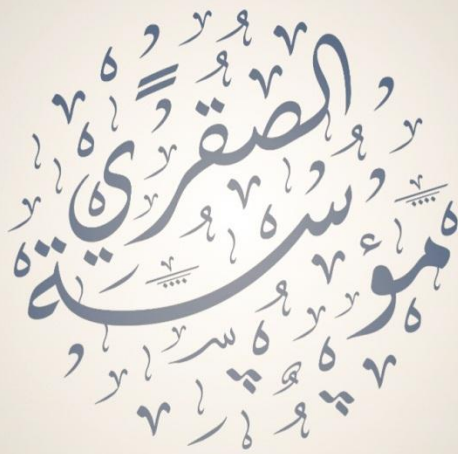 مؤسسة
الصقري